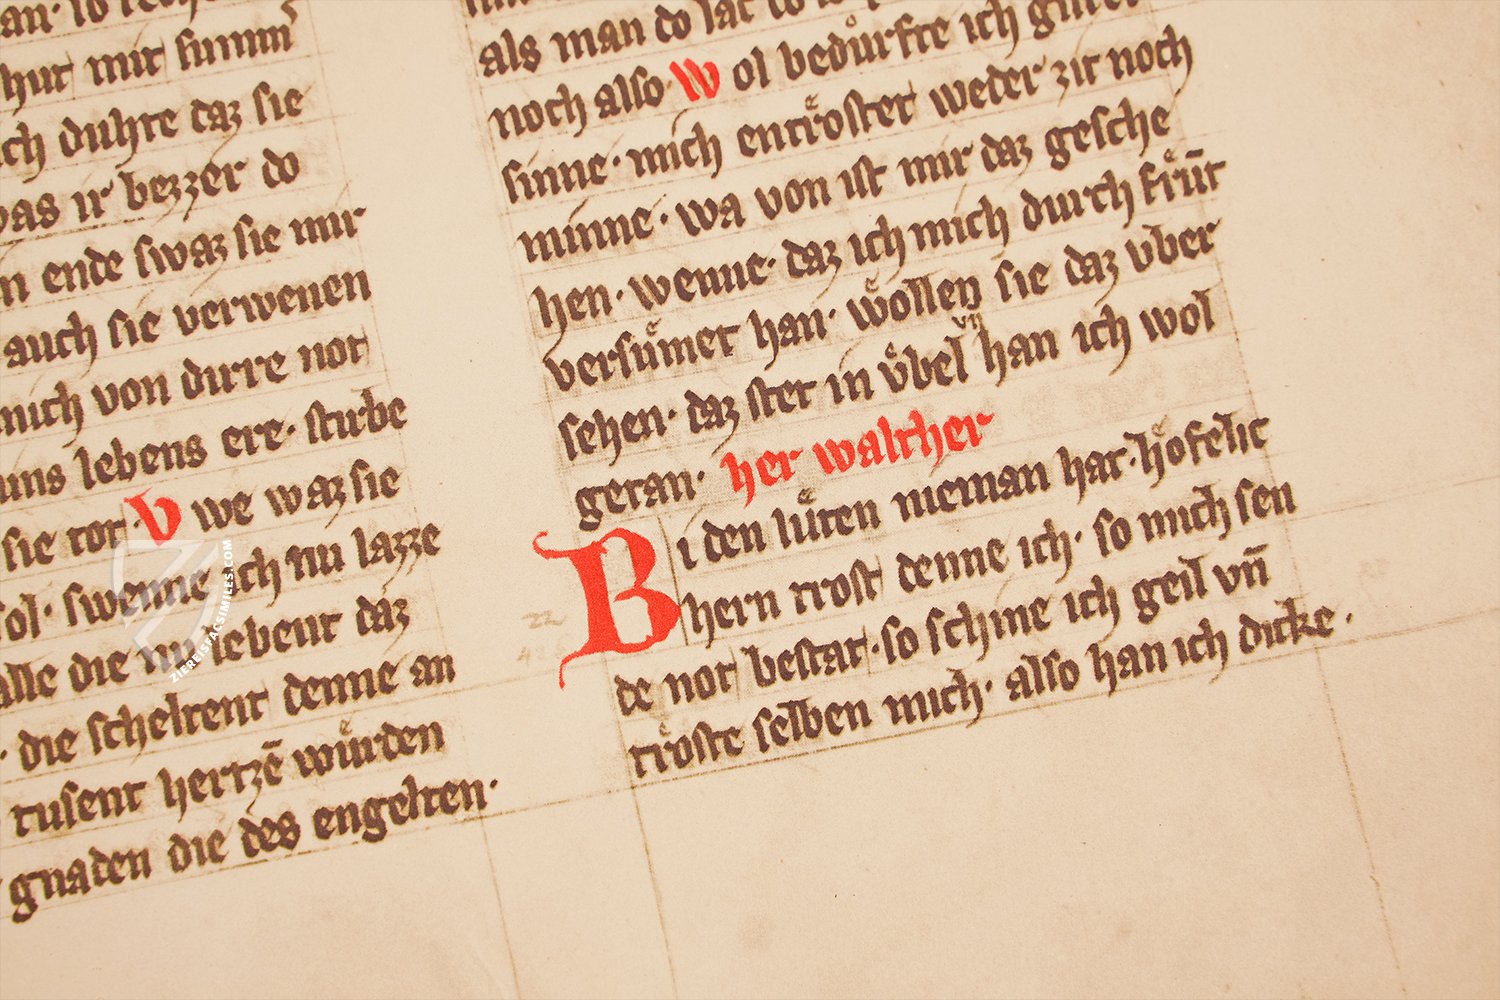 hut mit sinnin
ich duhte daz sie
was ir bezzer do
n ende swaz sie mir
auch sie verwenen
mich von dirre not
uns lebens ere· stirbe
sie tot· V we waz sie
sol· swenne ich nu lazze
alle die nu lebent daz
· die scheltent denne an
tusent hertzē wuͤrden
gnaden die des engelten·
als man do
noch also· W ol beduͤrfte ich guter
sinne· mich entroͤstet weder zit noch
minne· wa von ist mir daz gesche
hen· wenne· daz ich mich durch
versuͤmet han· woͤllen sie daz vber
sehen· daz stet in vͤbel han ich wol
getan· her walther
B i den luͤten nieman hat· hoͤfelic
hern trost denne ich· so mich sen
de not bestat· so schine ich geil vn̄
troͤste selben mich· also han ich dicke·
22
ZIEREISFACSIMILES.COM